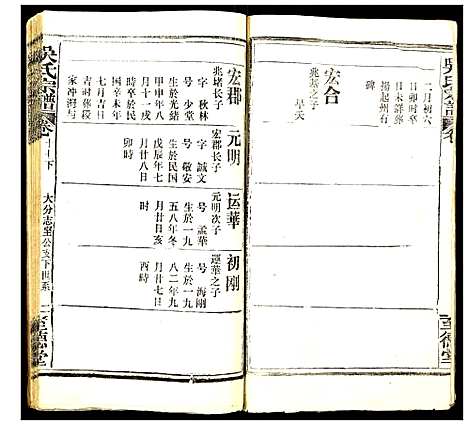 二月初六
日卯時
日未詳葬
揚起州有
碑
宏合
兆基之子
早夭
吳氏宗譜
大分志至公支下世系
至德堂
宏郡
兆堵长子
字 秋林
号 少堂
生於光緒
甲申年八
月十一戌
時卒於民
国辛未年
七月吉日
吉时葬段
家冲湾与
元明
宏郡长子
字 誠文
号 敬安
生於民国
戊辰年七
月廿八日
卯時
运華
元明次子
号 孟華
生於一九
五八年冬
月廿日亥
时
初刚
運華之子
号 海刚
生於一九
八二年九
月廿七日
酉時
至德堂